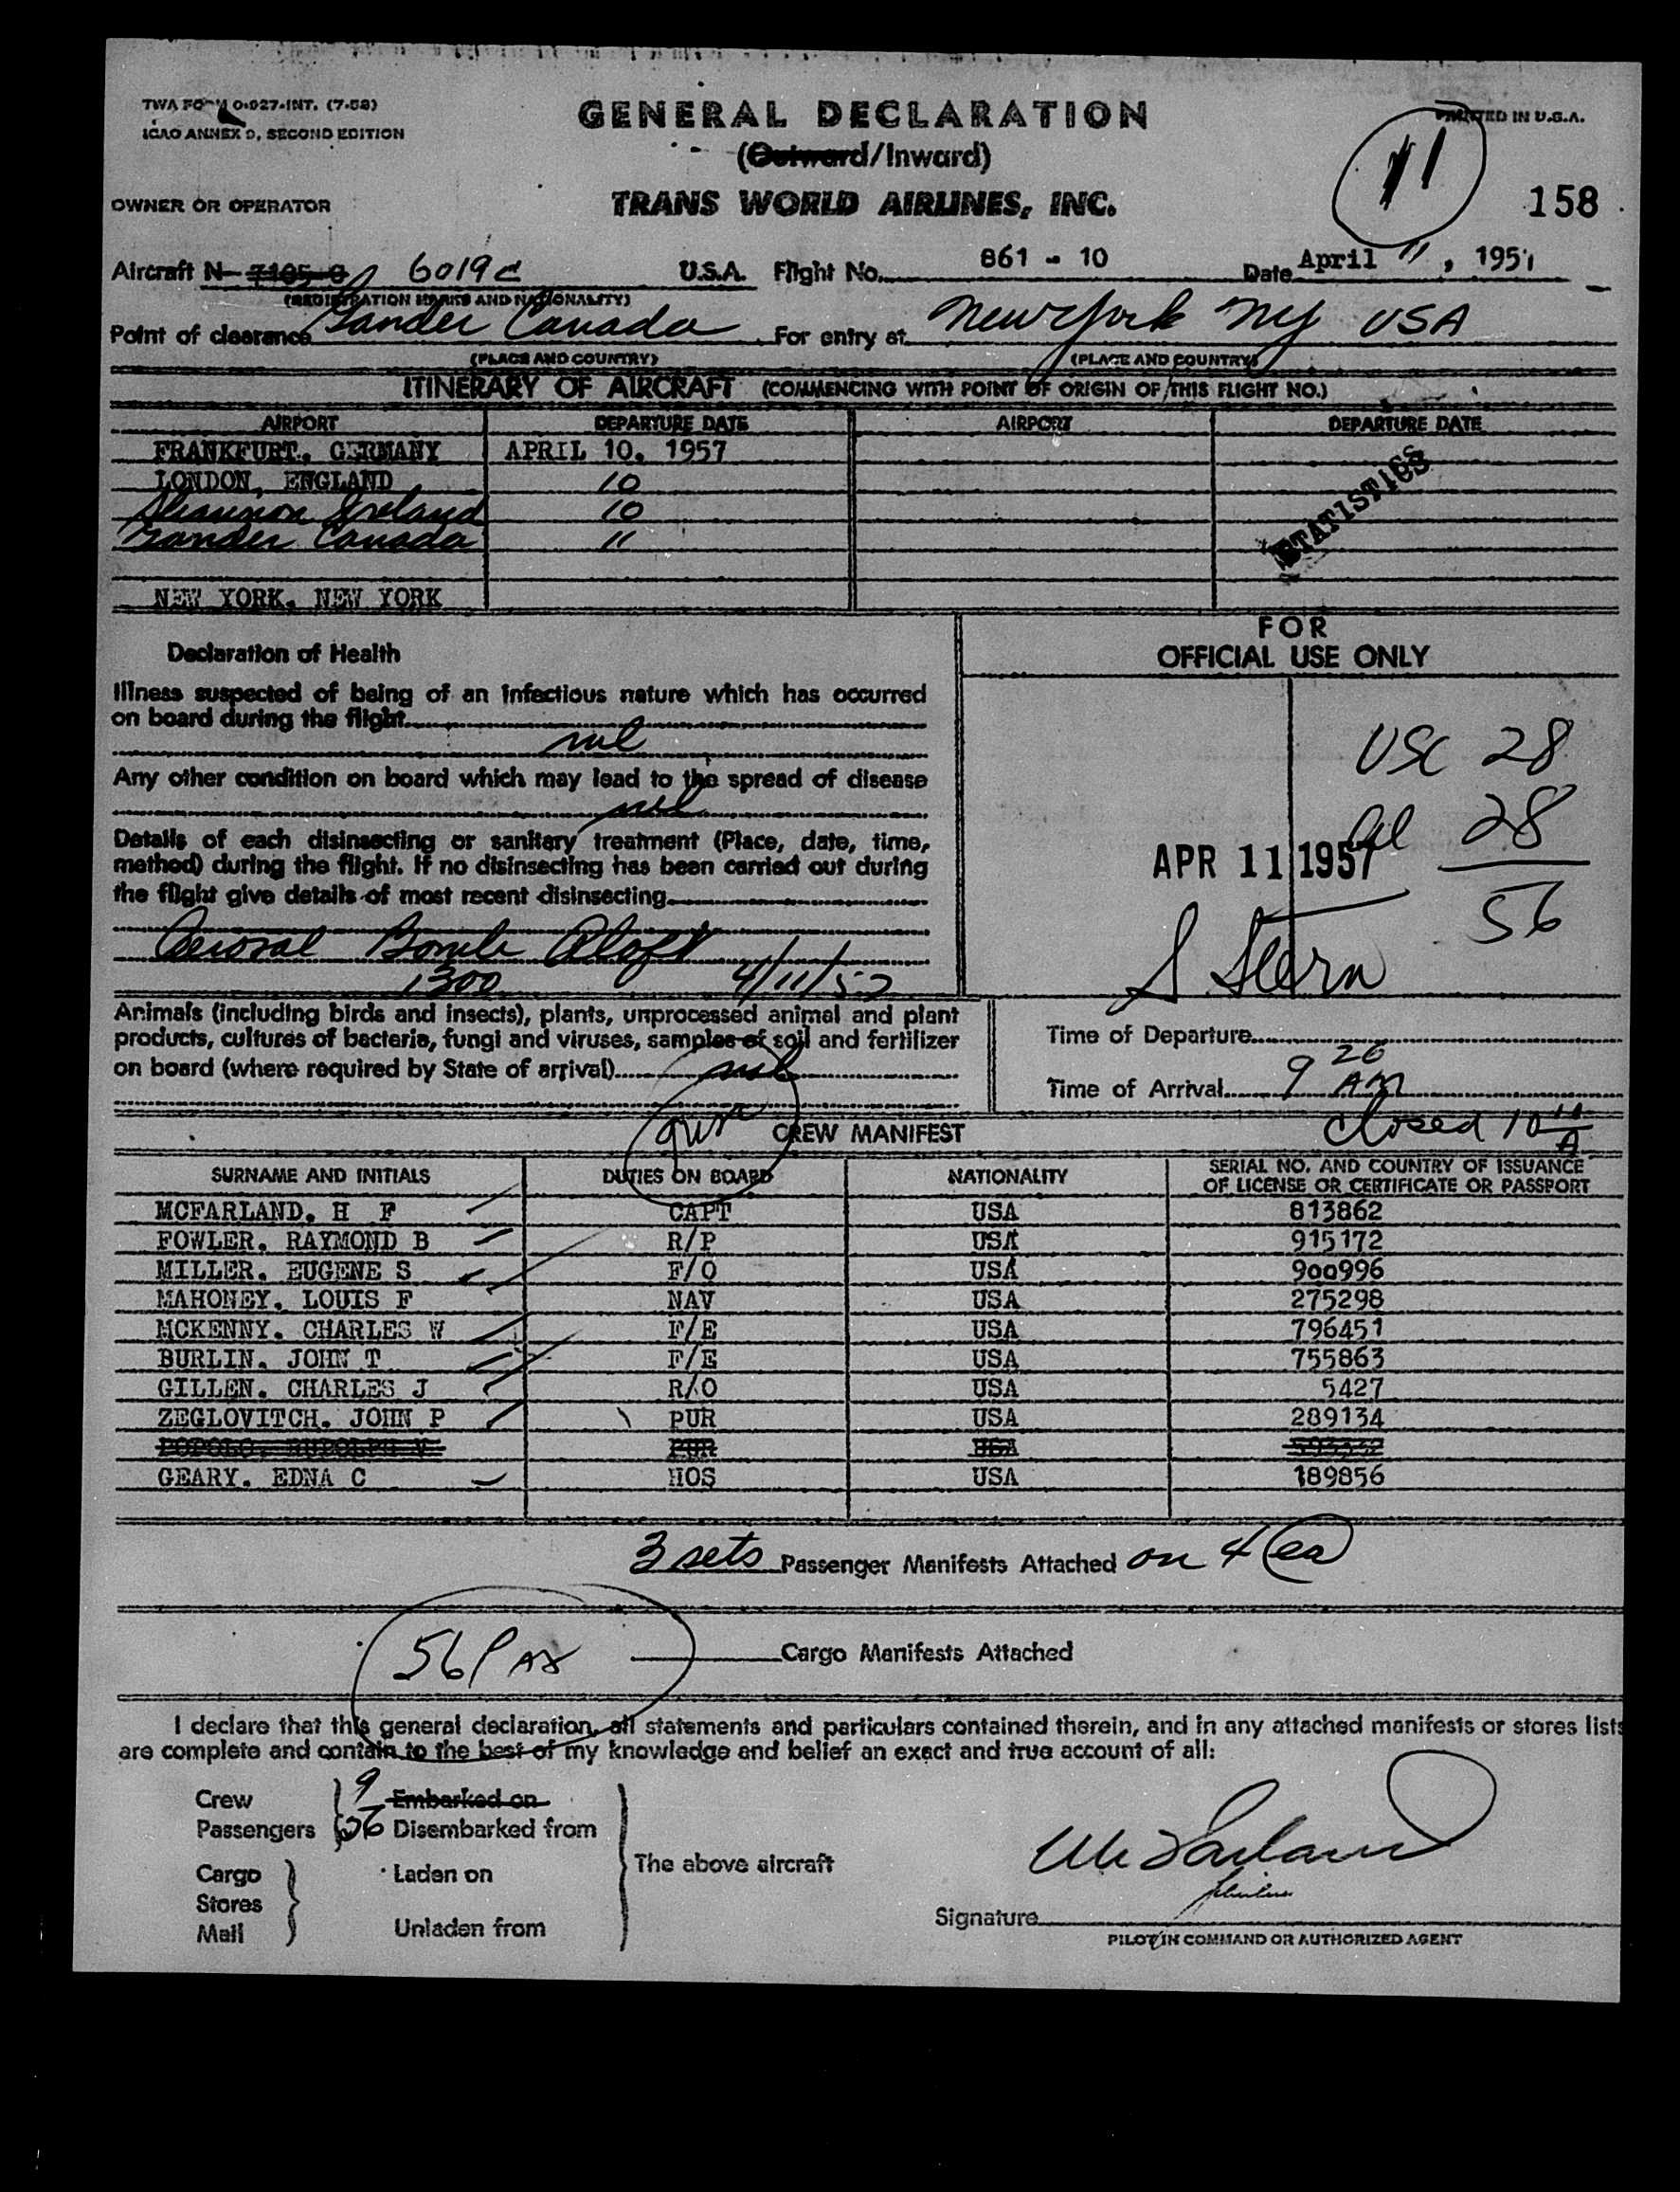 TWA FORM O-927-INT. (7-53)
ICAO ANNEX 9, SECOND EDITION
GENERAL DECLARATION
(Outward/Inward)
PRINTED IN U.S.A.
11
OWNER OR OPERATOR
TRANS WORLD AIRLINES, INC.
158
Aircraft N- 7105-C 6019C U.S.A. Flight No. 861 - 10 Date April 11, 1957
(REGISTRATION MARKS AND NATIONALITY)
Point of clearance Gander Canada For entry at New York NY USA
(PLACE AND COUNTRY) (PLACE AND COUNTRY)
ITINERARY OF AIRCRAFT (COMMENCING WITH POINT OF ORIGIN OF THIS FLIGHT NO.)
AIRPORT DEPARTURE DATE AIRPORT DEPARTURE DATE
FRANKFURT, GERMANY APRIL 10, 1957
LONDON, ENGLAND 10
Shannon Ireland 10
Gander Canada 11
STATISTICS
NEW YORK, NEW YORK
FOR
OFFICIAL USE ONLY
Declaration of Health
Illness suspected of being of an infectious nature which has occurred
on board during the flight
nil
Any other condition on board which may lead to the spread of disease
nil
Details of each disinsecting or sanitary treatment (Place, date, time,
method) during the flight. If no disinsecting has been carried out during
the flight give details of most recent disinsecting
Aerosal Bomb Aloft
1300 4/11/57
USC 28
Al 28
56
APR 11 1957
S. Stern
Animals (including birds and insects), plants, unprocessed animal and plant
products, cultures of bacteria, fungi and viruses, samples of soil and fertilizer
on board (where required by State of arrival) nil
Time of Departure
Time of Arrival 9 20 AM
closed 10 10 A
CREW MANIFEST
SURNAME AND INITIALS DUTIES ON BOARD NATIONALITY SERIAL NO. AND COUNTRY OF ISSUANCE
OF LICENSE OR CERTIFICATE OR PASSPORT
MCFARLAND, H F CAPT USA 813862
FOWLER, RAYMOND B R/P USA 915172
MILLER, EUGENE S F/O USA 900996
MAHONEY, LOUIS F NAV USA 275298
MCKENNY, CHARLES W F/E USA 796451
BURLIN, JOHN T F/E USA 755863
GILLEN, CHARLES J R/O USA 5427
ZEGLOVITCH, JOHN P PUR USA 289134
PUR USA
GEARY, EDNA C HOS USA 189856
3 sets Passenger Manifests Attached on 4 ea
56 PAX
Cargo Manifests Attached
I declare that this general declaration, all statements and particulars contained therein, and in any attached manifests or stores lists
are complete and contain to the best of my knowledge and belief an exact and true account of all:
Crew 9 Embarked on
Passengers 56 Disembarked from
Cargo Laden on
The above aircraft
Stores
Mail Unladen from
McFarland
Signature
PILOT IN COMMAND OR AUTHORIZED AGENT